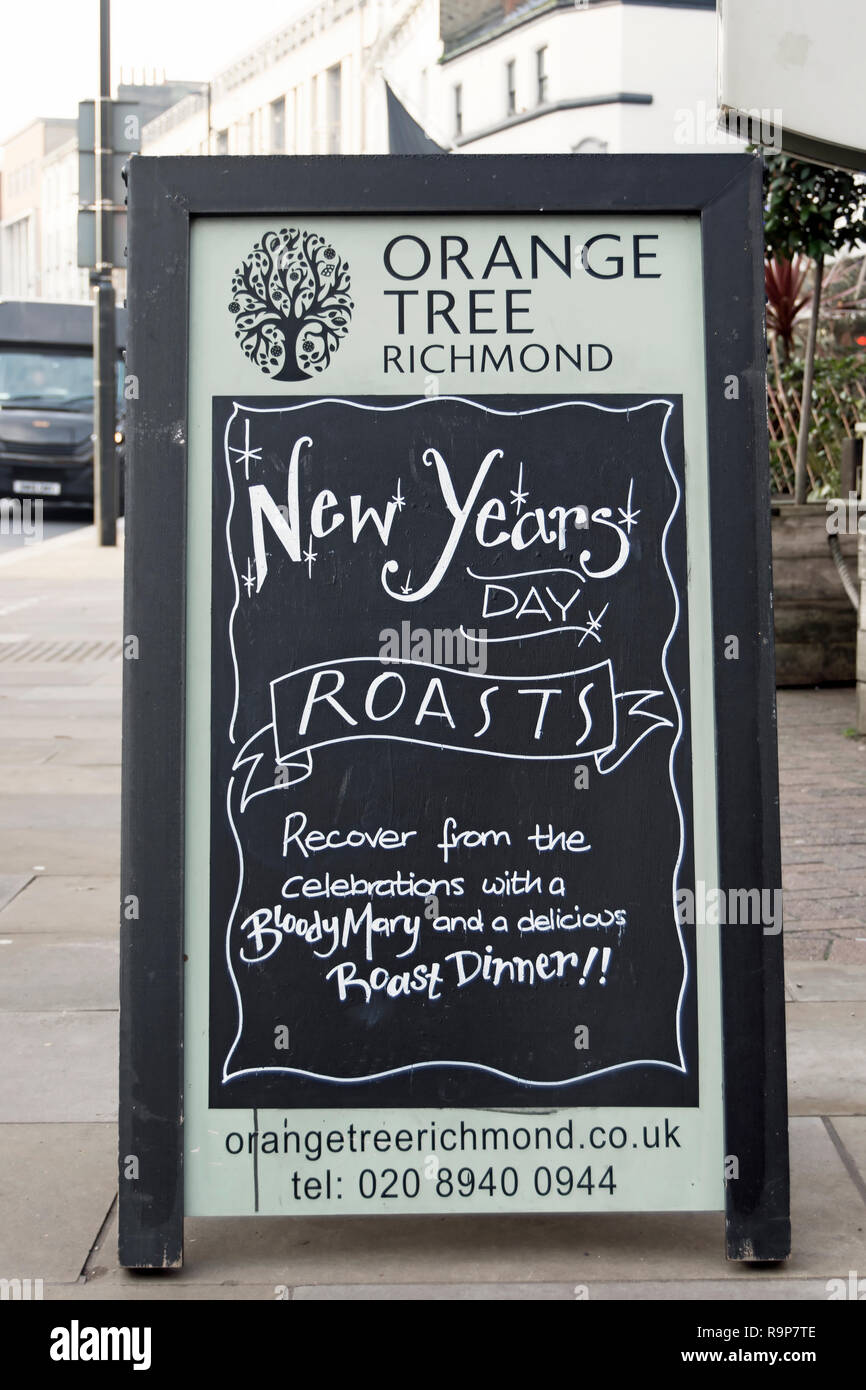 ORANGE
TREE
RICHMOND
New Years
DAY
ROASTS
Recover from the
celebrations with a
Bloody Mary and a delicious
Roast Dinner!!
orangetreerichmond.co.uk
tel: 020 8940 0944
alamy
Image ID: R9P7TE
www.alamy.com